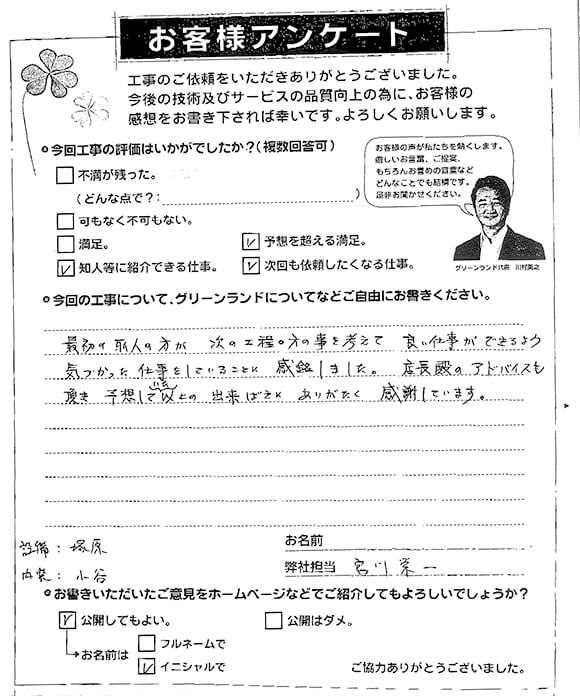 お客様アンケート
工事のご依頼をいただきありがとうございました。
今後の技術及びサービスの品質向上の為に、お客様の
感想をお書き下されば幸いです。よろしくお願いします。
今回工事の評価はいかがでしたか？(複数回答可)
不満が残った。
(どんな点で？: )
可もなく不可もない。
満足。
予想を超える満足。
知人等に紹介できる仕事。
次回も依頼したくなる仕事。
お客様の声が私たちを熱くします。
厳しいお言葉、ご提案、
もちろんお褒めの言葉など
どんなことでも結構です。
是非お聞かせください。
グリーンランド代表 川村英之
今回の工事について、グリーンランドについてなどご自由にお書きください。
最初の職人の方が 次の工程の方の事を考えて 良い仕事ができるよう
気づかった仕事をしていることに 感銘しました。 店長殿のアドバイスも
頂き 予想していた以上の 出来ばえに ありがたく 感謝しています。
設備: 塚原
内装: 小谷
お名前
弊社担当 宮川 栄一
お書きいただいたご意見をホームページなどでご紹介してもよろしいでしょうか？
公開してもよい。
公開はダメ。
お名前は
フルネームで
イニシャルで
ご協力ありがとうございました。